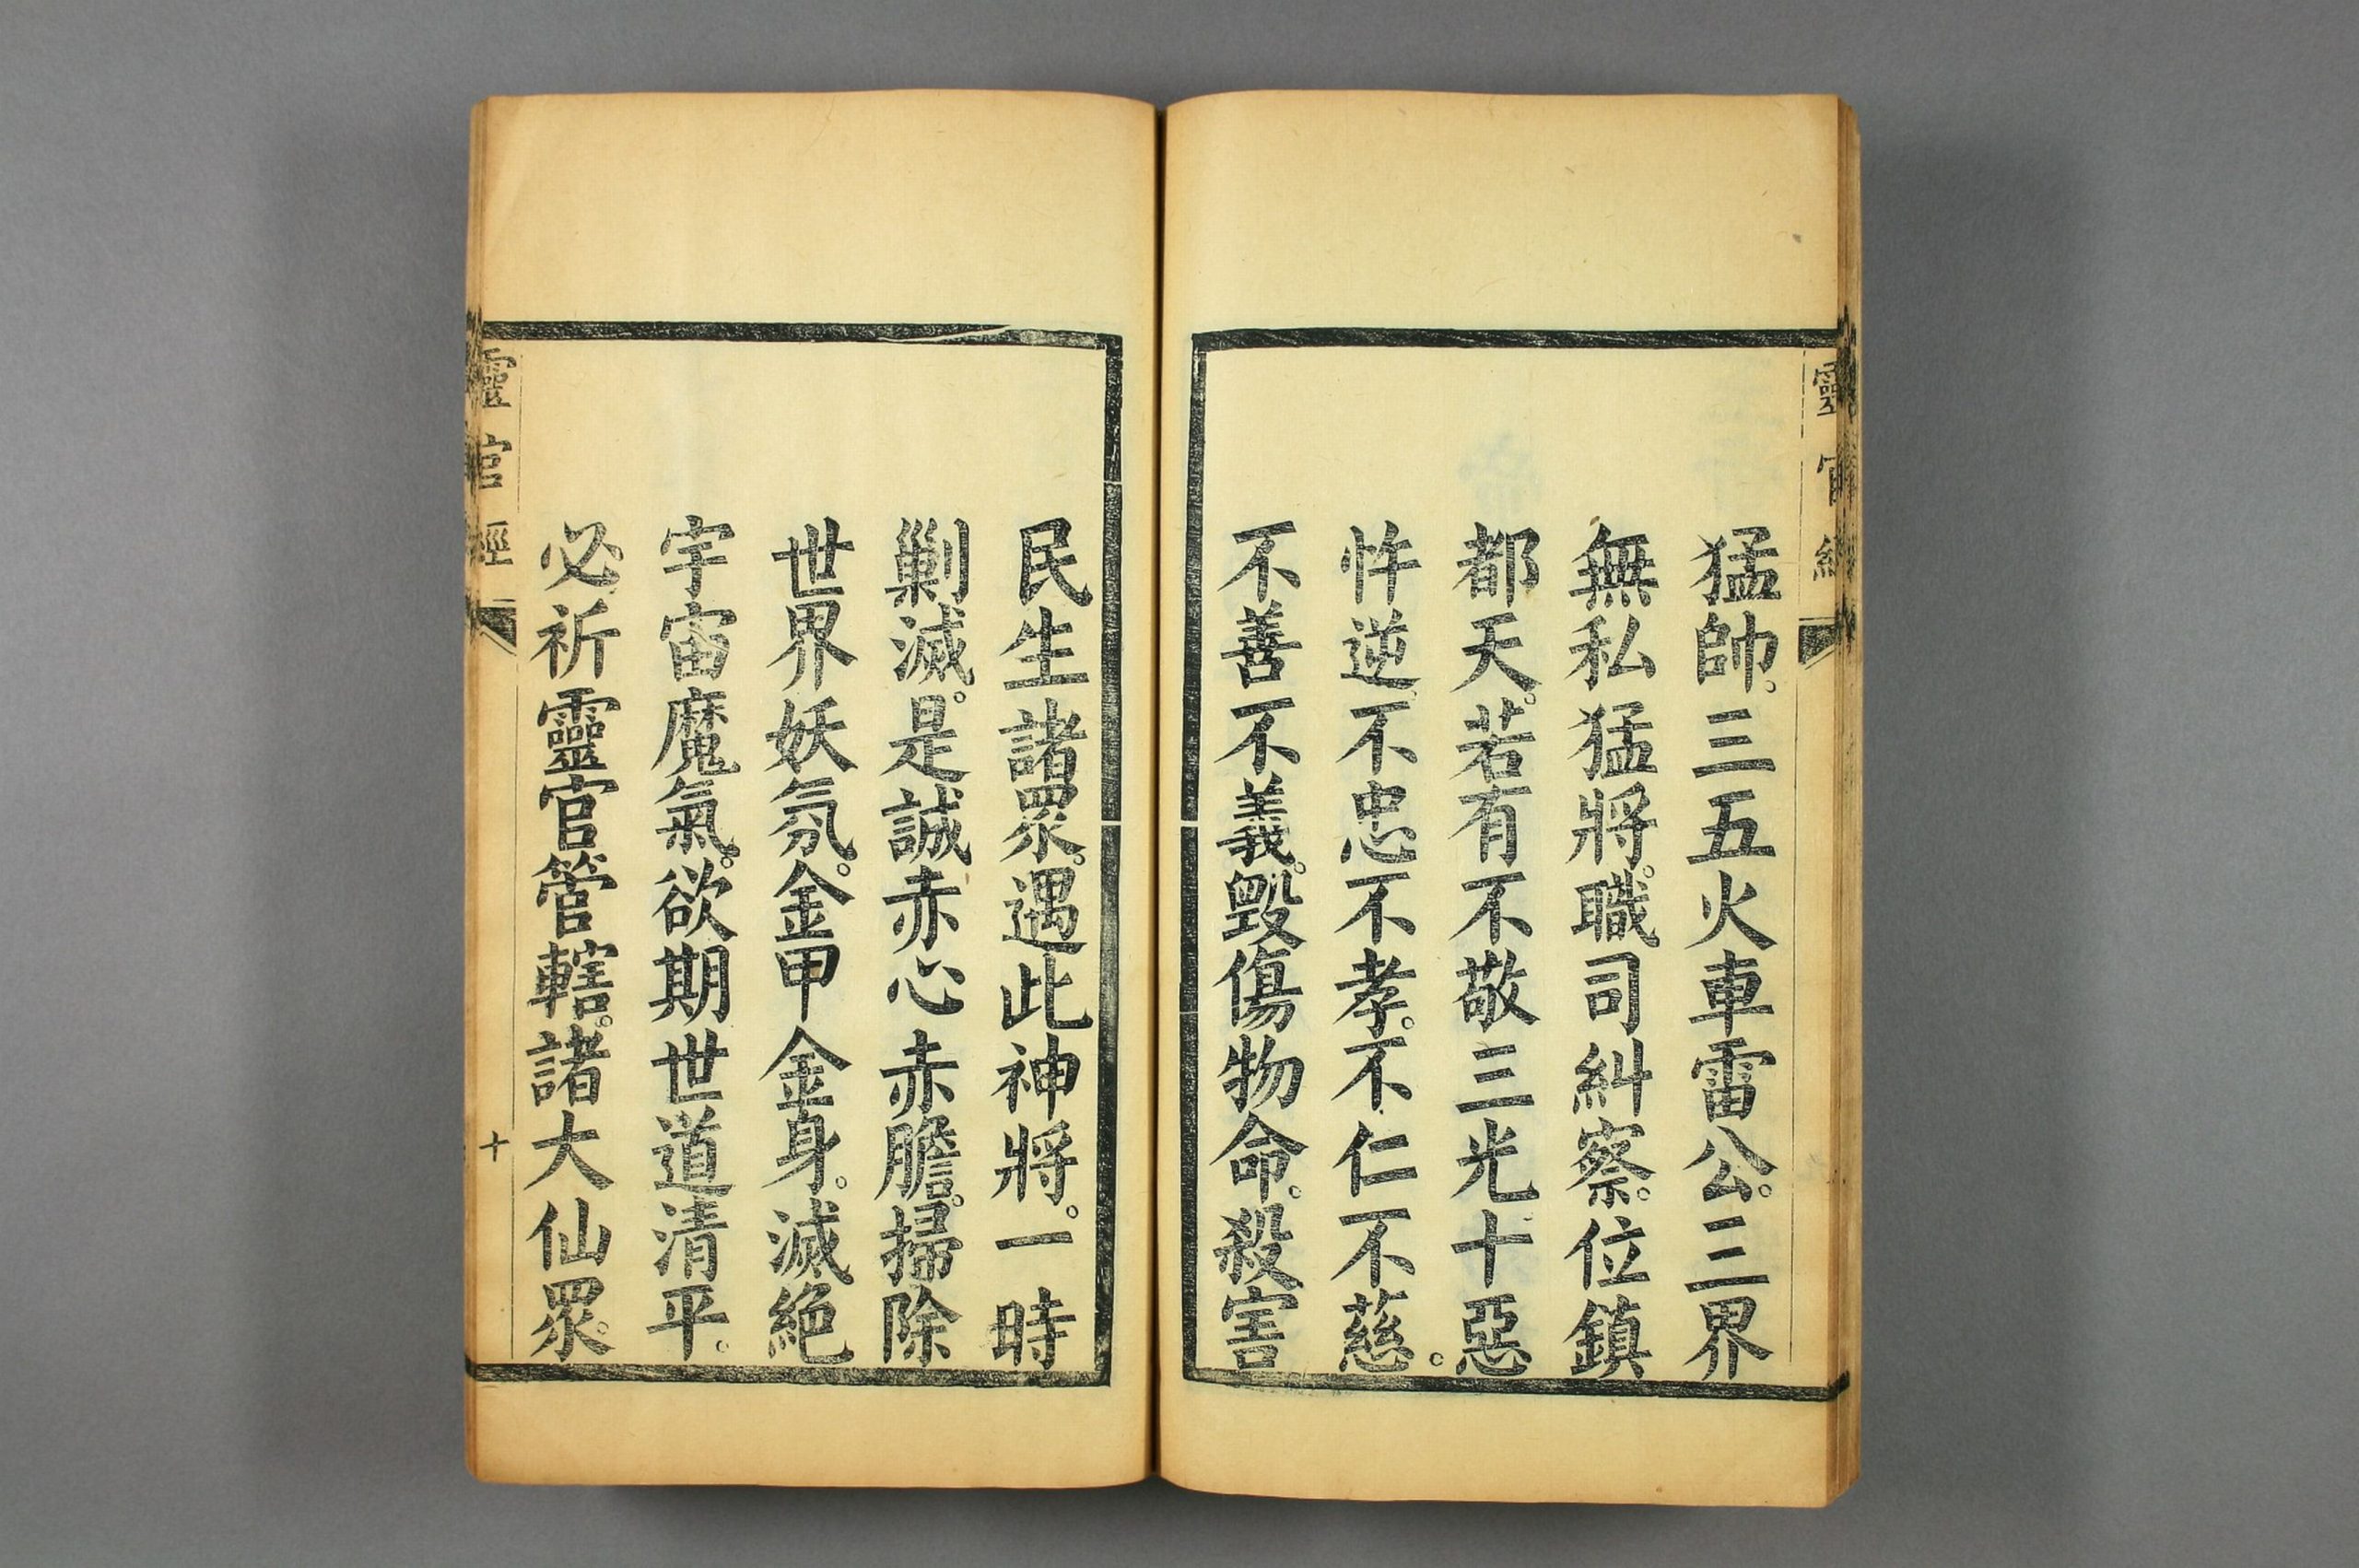 靈官經
猛帥。三五火車雷公。三界
無私猛將。職司糾察。位鎮
都天。若有不敬三光十惡
忤逆。不忠不孝。不仁不慈。
不善不義。毀傷物命。殺害
民生諸眾。遇此神將。一時
剿滅。是誠赤心赤膽。掃除
世界妖氛。金甲金身。滅絕
宇宙魔氣。欲期世道清平。
必祈靈官管轄。諸大仙眾。
靈官經
十